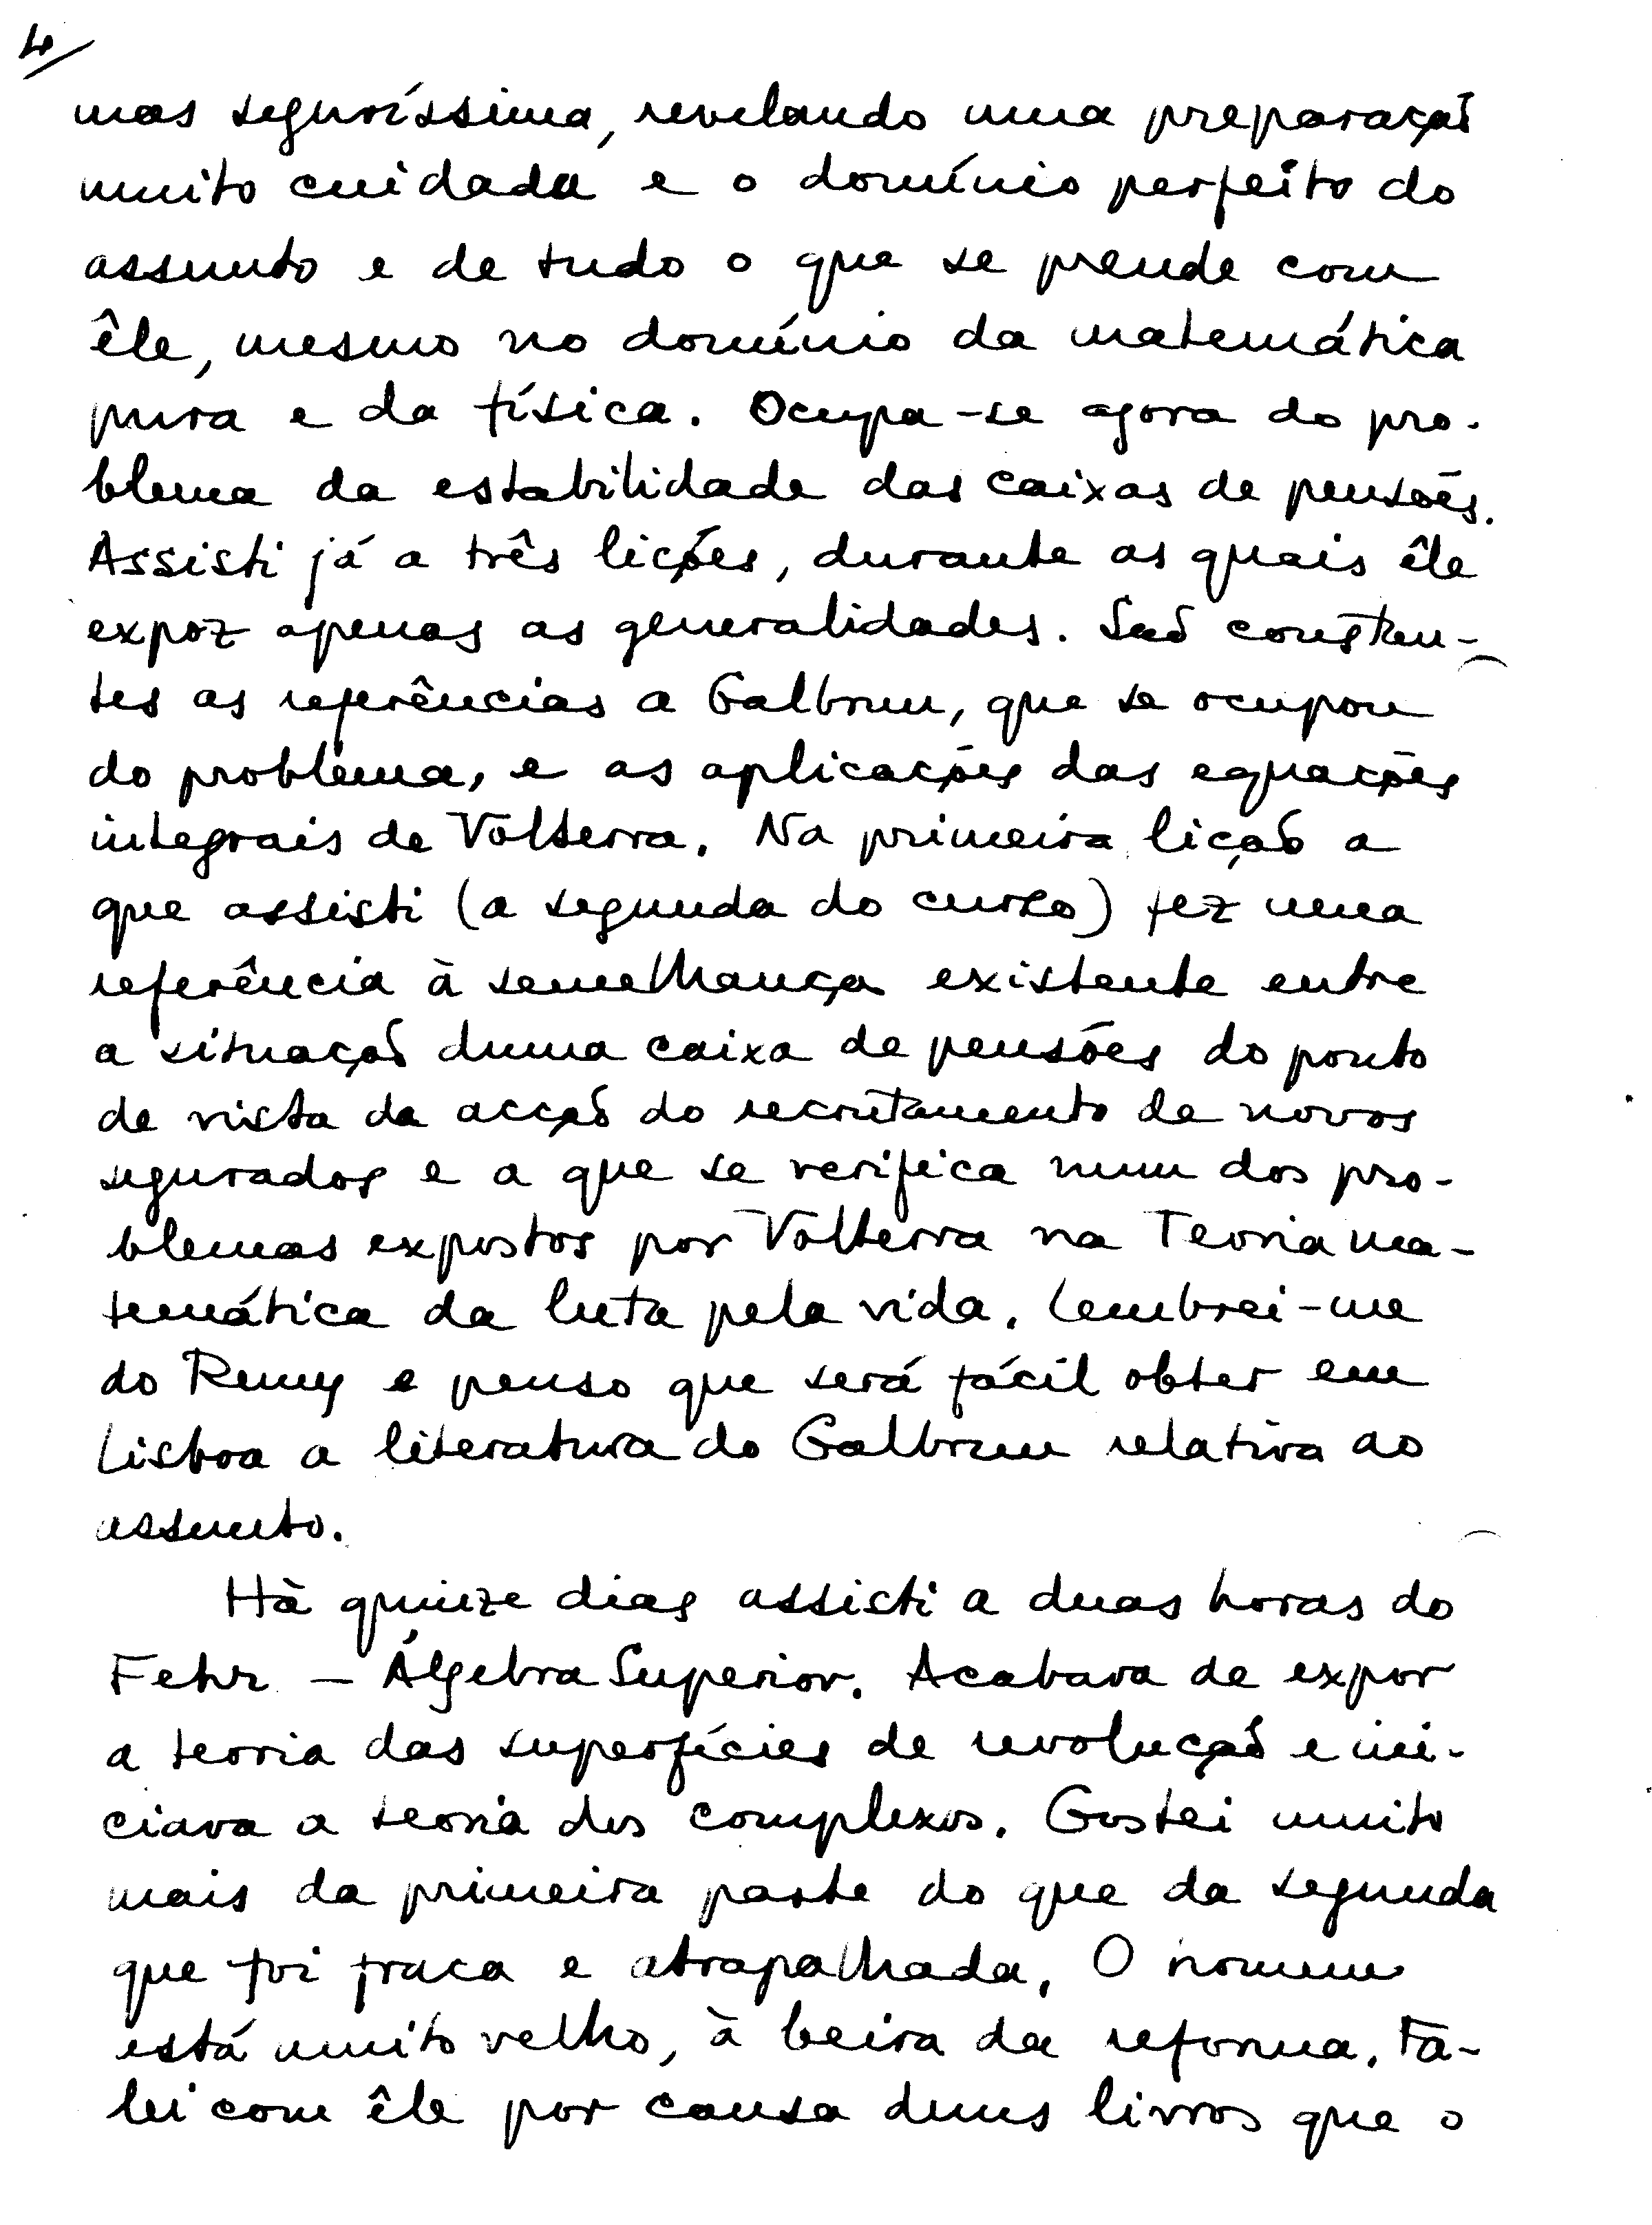 4
mas seguríssima, revelando uma preparação
muito cuidada e o domínio perfeito do
assunto e de tudo o que se prende com
êle, mesmo no domínio da matemática
pura e da física. Ocupa-se agora do pro-
blema da estabilidade das caixas de pensões.
Assisti já a três lições, durante as quais êle
expoz apenas as generalidades. São constan-
tes as referências a Galbrun, que se ocupou
do problema, e as aplicações das equações
integrais de Volterra. Na primeira lição a
que assisti (a segunda do curso) fez uma
referência à semelhança existente entre
a situação duma caixa de pensões do ponto
de vista da acção do recrutamento de novos
segurados e a que se verifica num dos pro-
blemas expostos por Volterra na Teoria ma-
temática da luta pela vida. Lembrei-me
do Remy e penso que será fácil obter em
Lisboa a literatura do Galbrun relativa ao
assunto.
Hà quinze dias assisti a duas horas do
Fehr - Álgebra Superior. Acabava de expor
a teoria das superfícies de revolução e ini-
ciava a teoria dos complexos. Gostei muito
mais da primeira parte do que da segunda
que foi fraca e atrapalhada. O homem
está muito velho, à beira da reforma. Fa-
lei com êle por causa duns livros que o